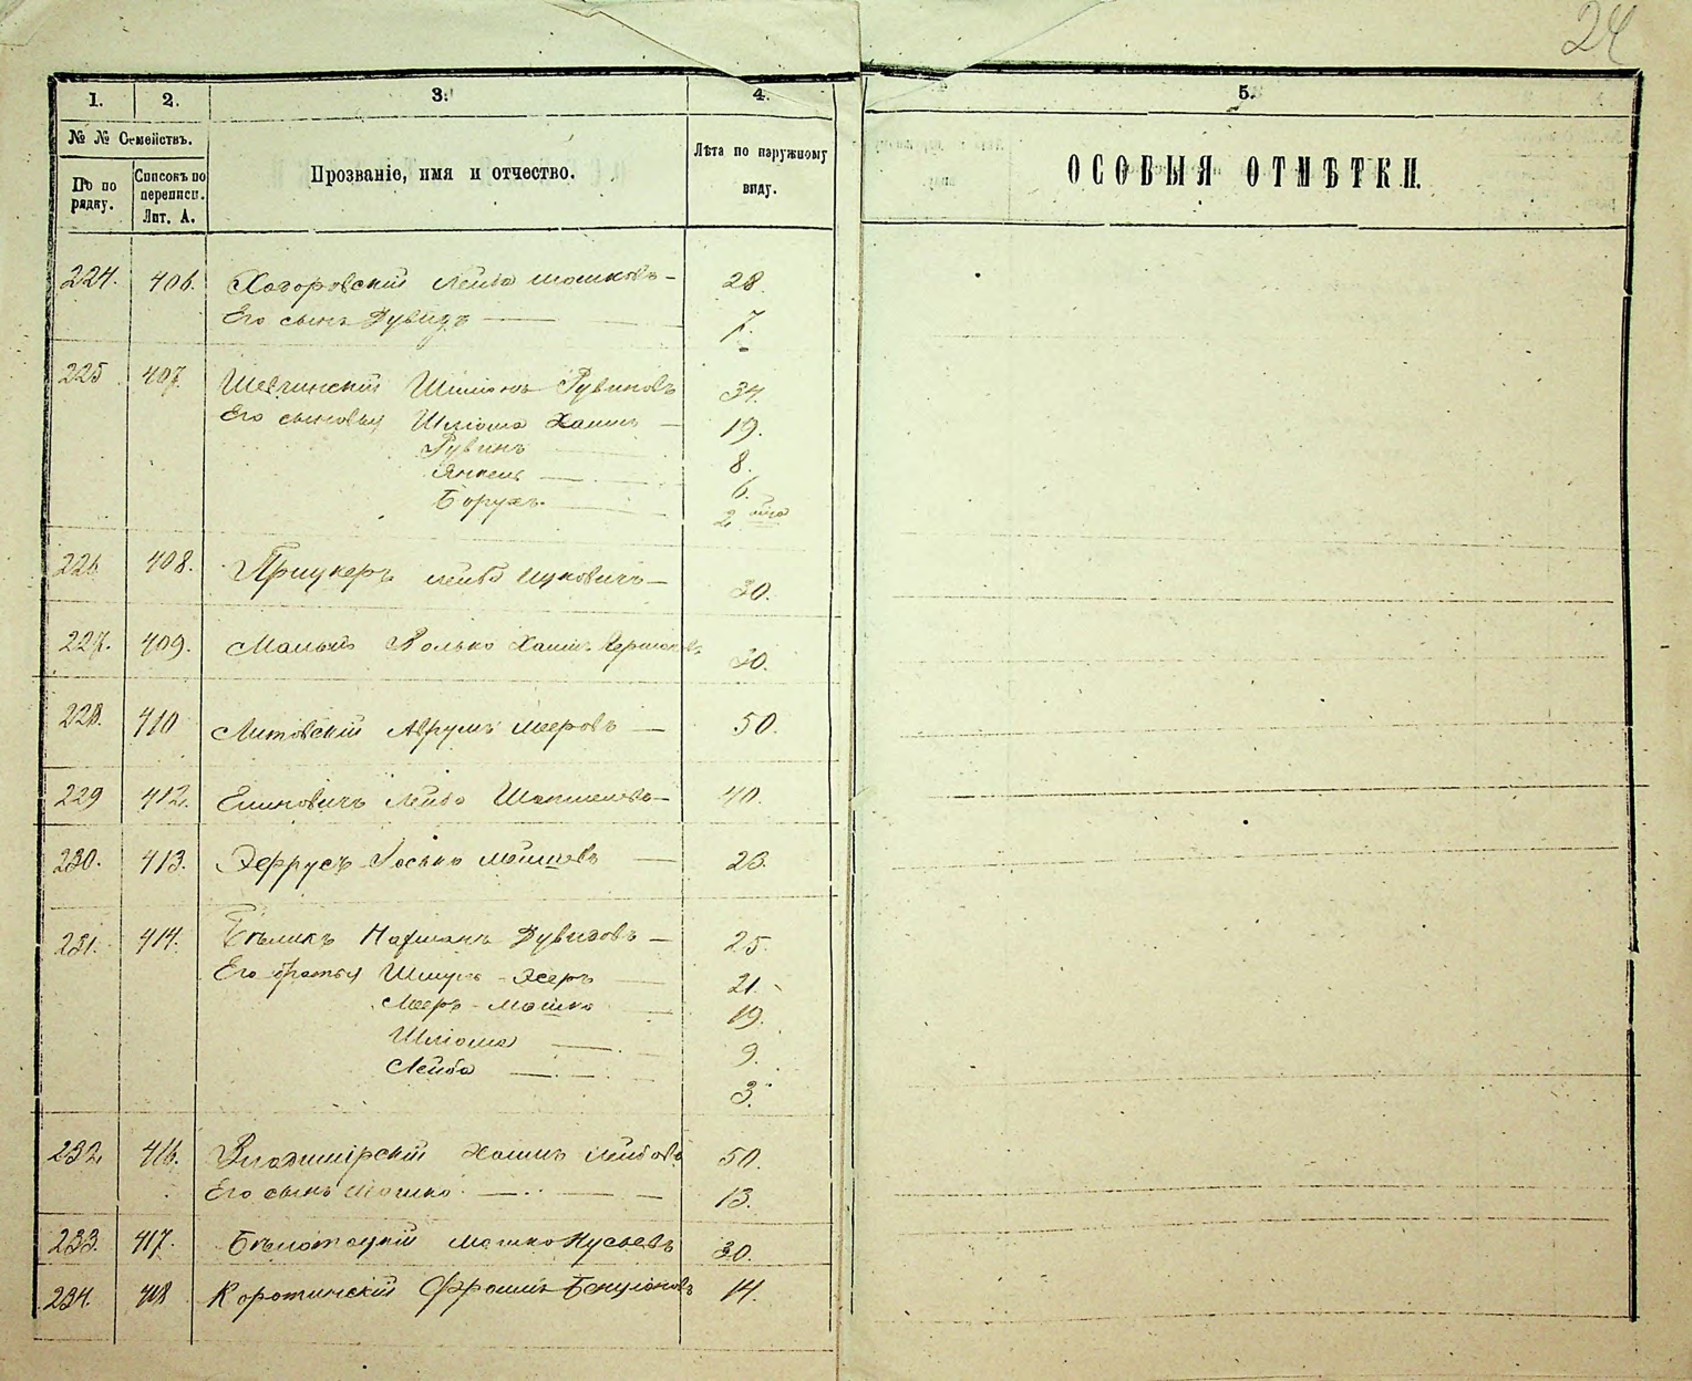 24
1. 2. 3. 4. 5.
№ № Семействъ.
По по рядку.
Списокъ по переписи. Лит. А.
Прозваніе, имя и отчество.
Лѣта по наружному виду.
ОСОБЫЯ ОТМѢТКИ.
224. 406. Хогоровскій Лейба Мошковъ — 28.
Его сынъ Дувидъ — 7.
225 407. Шевчинскій Шліома Рувиновъ 34.
Его сыновья Шліома Хаимъ — 19.
Рувинъ 8.
Янкель — 6.
Борухъ. 2
226 408. Прицкеръ Лейба Ицковичъ — 30.
227. 409. Малый Волько Хаимъ 30.
228. 410 Литовскій Аврумъ Мееровъ — 50.
229 412. Лейба 40.
230. 413. Эфрусъ Іосько Мошковъ — 26.
231. 414. Бѣликъ Нахманъ Дувидовъ — 25.
Его братья Шмуль-Эсеръ — 21.
Мееръ-Мошко — 19.
Шліома — 9.
Лейба — 3.
232. 416. Владимірскій Хаимъ Лейбовъ 50.
Его сынъ Мошко — 13.
233. 417. Бѣлотоцкій Мошко Нусьевъ 30.
234. 418 Коротинскій Фроимъ Бенціоновъ 14.